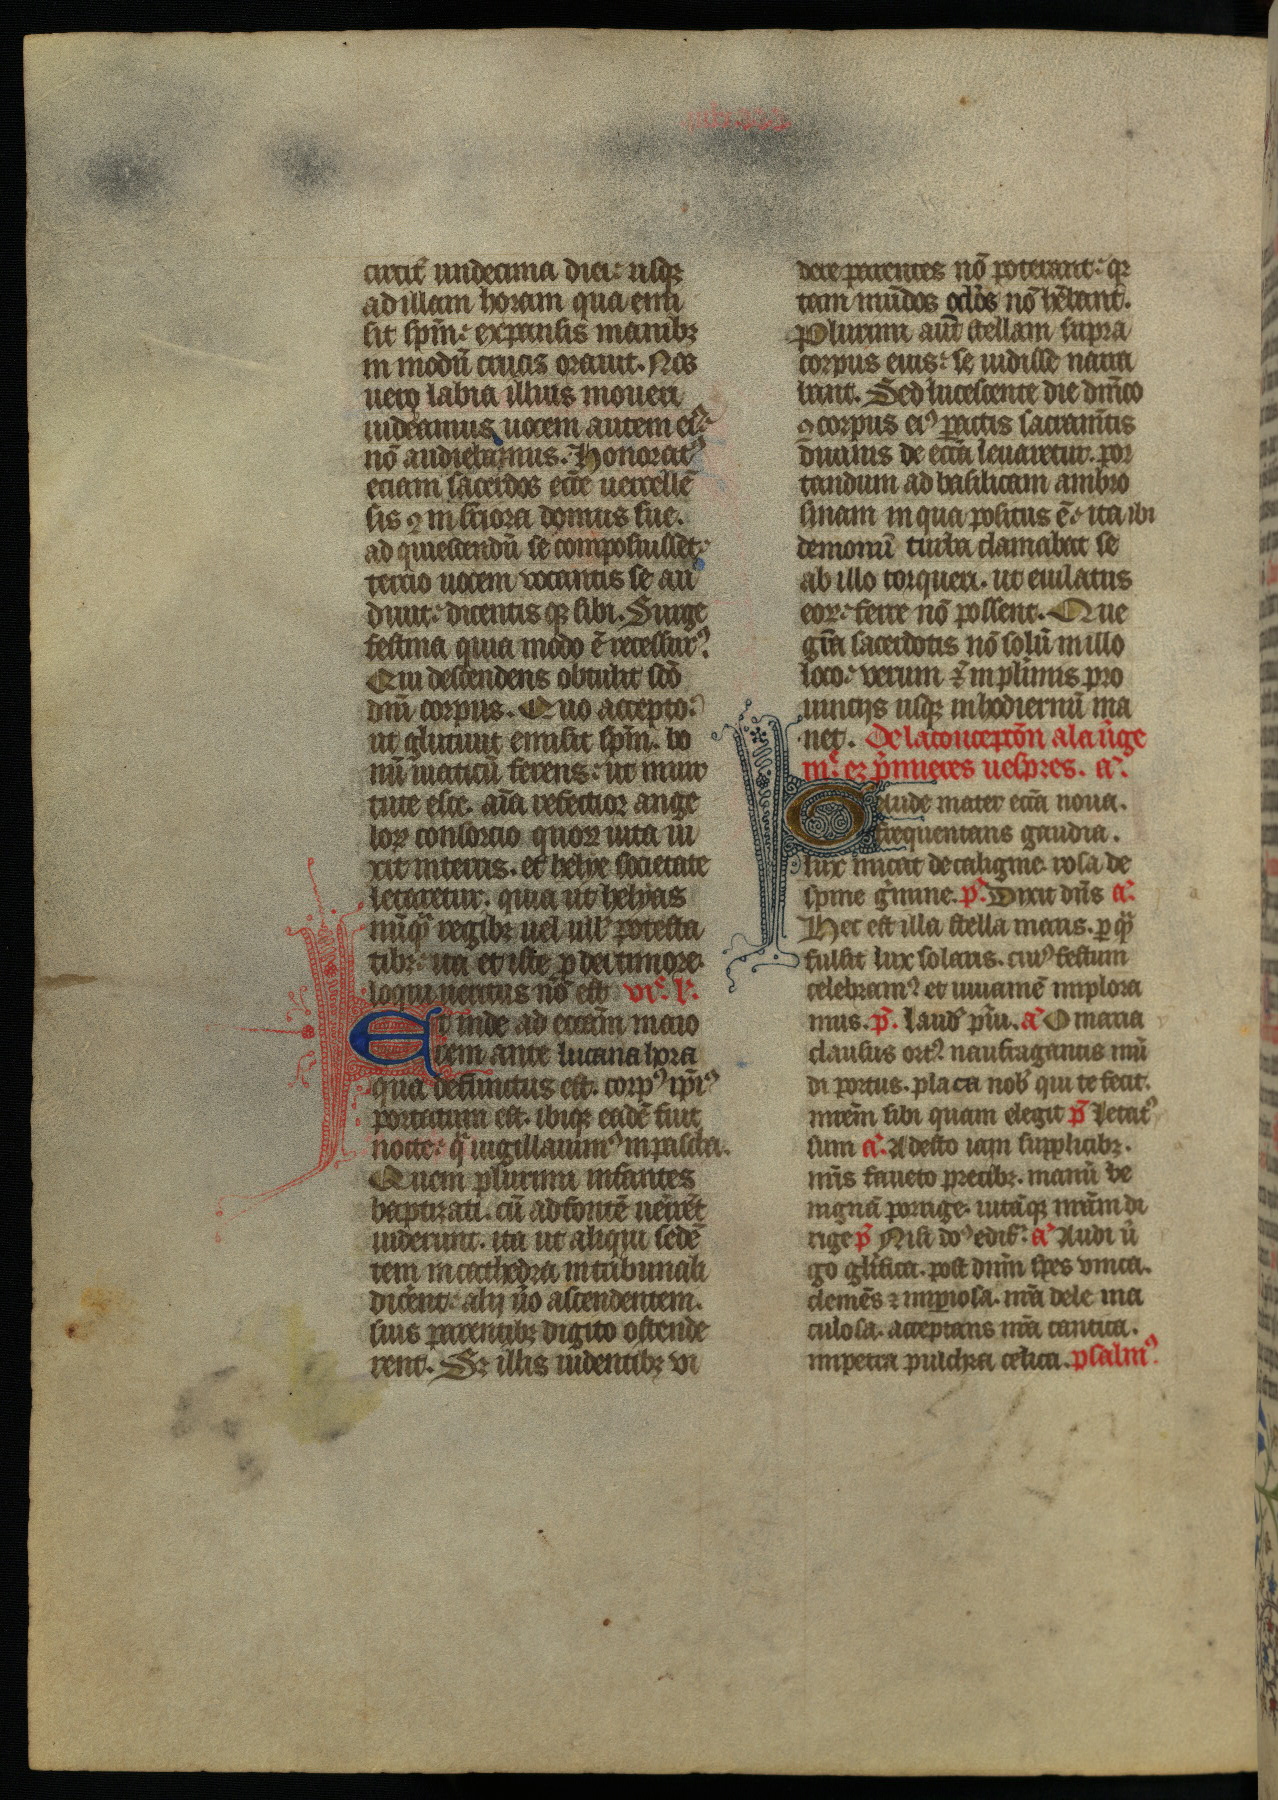 circit̄ undecima diei: usqꝫ
ad illam horam qua emi
sit sp̄m: expansis manibꝫ
in modū crucis orauit. Nos
uero labia illius moueri
uidebamus uocem autem eiꝰ
nō audiebamus. Honoratꝰ
eciam sacerdos ecc̄e uercellē
sis ꝯ in sc̄iora domus sue.
ad quiescendū se composuisset:
tercio uocem vocantis se au
diuit: dicentis qꝫ sibi. Surge
festina quia modo ē recessurꝰ.
Qui descendens obtulit sc̄o
dn̄i corpus. Quo accepto:
ut glutiuit emisit sp̄m. bo
nū uiaticū ferens: ut in uir
tute esce. aīa refectior ange
loꝝ consorcio quoꝝ uita ui
xit in terris. et helye societate
letaretur. quia ut helyas
nūqͣ regibꝫ uel ull' potesta
tibꝫ: ita et iste ꝑ dei timore.
loqui ueritus nō est. viͤ. l'.
Et inde ad ecc̄am maio
rem ante lucana hora
qua defunctus est. corpꝰ ip̄iꝰ
portatum est. ibiqꝫ eadē fuit
nocte: qͣ uigillauimꝰ in pascha.
Quem plurimi infantes
baptizati. cū ad fontē uēir̄et
uiderunt. ita ut aliqui sedē
tem in cathedra in tribunali
dicent: alij ūo ascendentem.
suis parentibꝫ digito ostende
rent. Sꝫ illis uidentibꝫ vi
dere parentes nō poterant: qꝫ
tam mūdos oclōs nō hēbant.
Plurimi aut̄ stellam supra
corpus eius: se uidisse narra
bant. Sed lucescente die dn̄ico
ꝯ corpus eiꝰ pactis sacram̄tis
diuinis de ecc̄a leuaretur. por
tandum ad basilicam ambro
sinam in qua positus ē: ita ibi
demonū turba clamabat se
ab illo torqueri. ut eiulatus
eoꝝ: ferre nō possent. Que
gr̄a sacerdotis nō solū in illo
loco: verum ⁊ in plīmis pro
uincijs usqꝫ in hodiernū ma
net. De la concepcōn a la ūge
mͤ. ez p̄mieres uespres. aͣ.
Gaude mater ecc̄a noua.
frequentans gaudia.
lux micat de caligine. rosa de
spine ḡmine. p̄. Dixit dn̄s aͣ.
Hec est illa stella maris. ꝑ qͣ
fulsit lux solaris. cuiꝰ festum
celebramꝰ et iuuamē implora
mus. p̄. Laud' p̄iu. aͣ O maria
clausus ortꝰ naufragantis mū
di portus. placa nob' qui te fecit.
mr̄em sibi quam elegit p̄ Letatꝰ
sum aͣ. Adesto iam supplicibꝫ.
nr̄is faueto precibꝫ. manū be
nignā porrige. uitāqꝫ nr̄am di
rige p̄ Nisi doꝰ edif̄. aͣ Audi ū
go gl̄ifica. post dn̄m spes vnica.
clemēs ⁊ imperiosa. nr̄a dele ma
culosa. acceptans nr̄a cantica.
impetra pulchra celica. psalmꝰ.